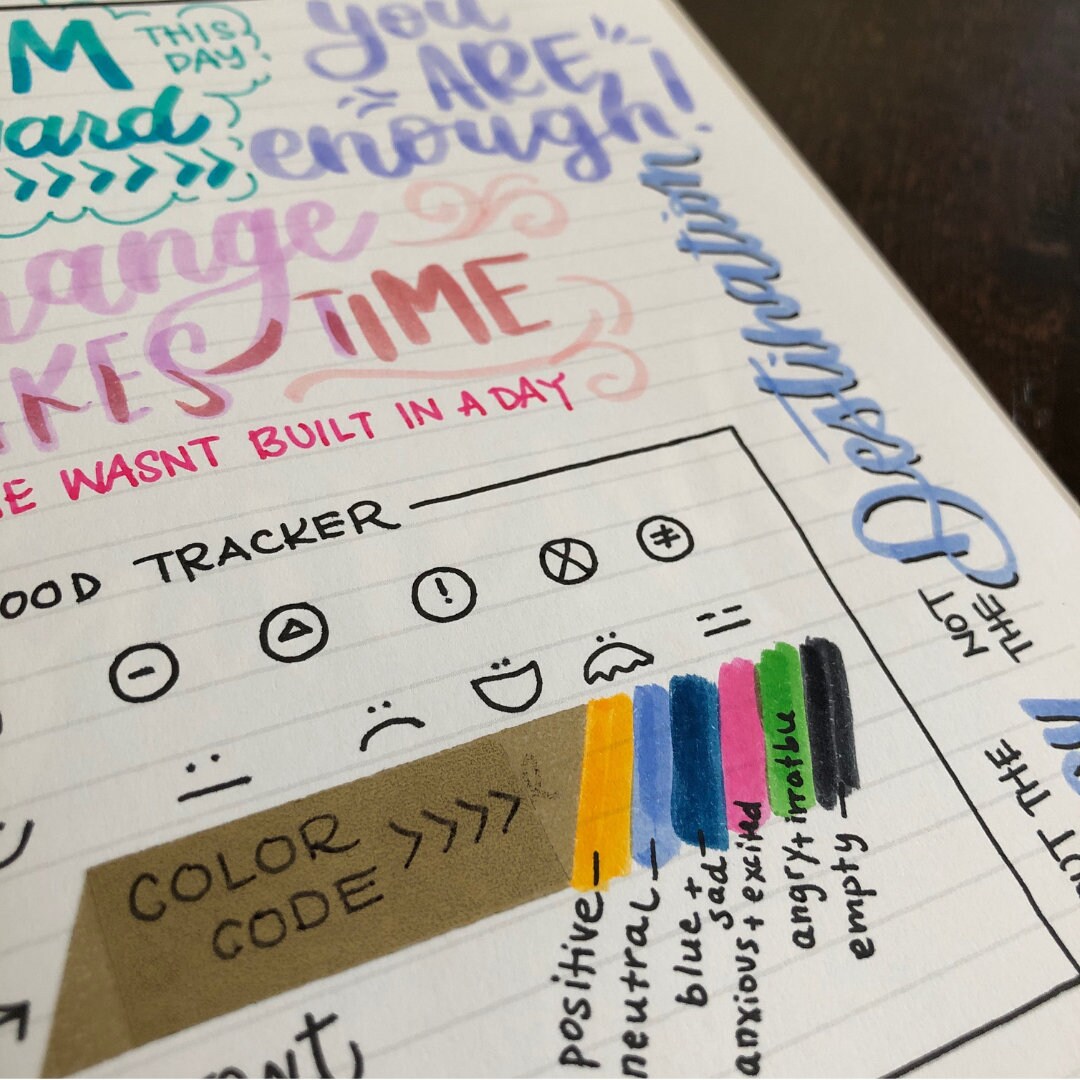 M
THIS
DAY
ward
>>>>>>
you
ARE
enough!
hange
AKES TIME
E WASNT BUILT IN A DAY
OOD TRACKER
COLOR
CODE >>>>
positive -
neutral -
blue +
sad -
anxious + excited
angry + irratbu
empty -
NOT
THE
Destination
UT THE